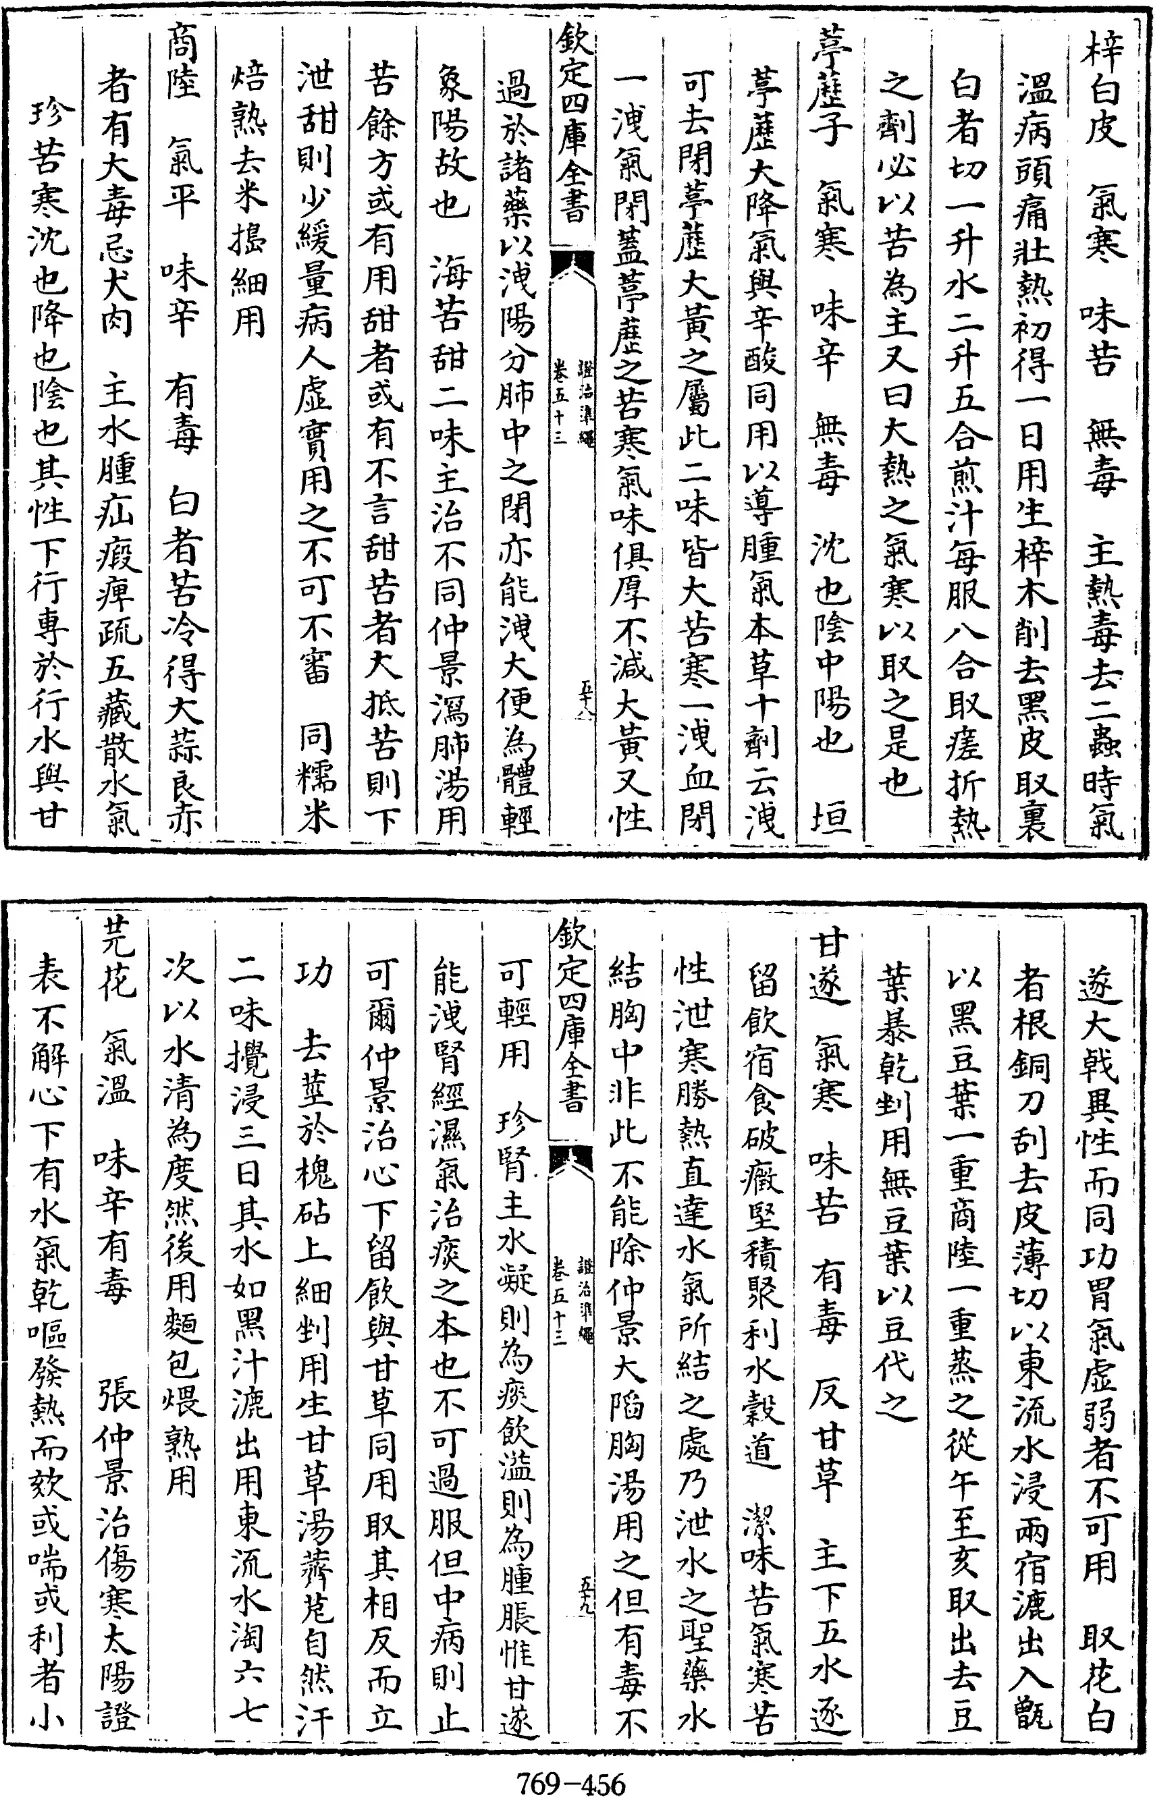 梓白皮　氣寒　味苦　無毒　主熱毒去三蟲時氣
溫病頭痛壯熱初得一日用生梓木削去黑皮取裏
白者切一升水二升五合煎汁每服八合取瘥折熱
之劑必以苦為主又曰大熱之氣寒以取之是也
葶藶子　氣寒　味辛　無毒　沈也陰中陽也　垣
葶藶大降氣與辛酸同用以導腫氣本草十劑云洩
可去閉葶藶大黃之屬此二味皆大苦寒一洩血閉
一洩氣閉蓋葶藶之苦寒氣味俱厚不減大黃又性
欽定四庫全書
證治準繩
卷五十三
五十八
過於諸藥以洩陽分肺中之閉亦能洩大便為體輕
象陽故也　海苦甜二味主治不同仲景瀉肺湯用
苦餘方或有用甜者或有不言甜苦者大抵苦則下
泄甜則少緩量病人虛實用之不可不審　同糯米
焙熟去米搗細用
商陸　氣平　味辛　有毒　白者苦冷得大蒜良赤
者有大毒忌犬肉　主水腫疝瘕痺疏五藏散水氣
珍苦寒沈也降也陰也其性下行專於行水與甘
遂大戟異性而同功胃氣虛弱者不可用　取花白
者根銅刀刮去皮薄切以東流水浸兩宿漉出入甑
以黑豆葉一重商陸一重蒸之從午至亥取出去豆
葉暴乾剉用無豆葉以豆代之
甘遂　氣寒　味苦　有毒　反甘草　主下五水逐
留飲宿食破癥堅積聚利水穀道　潔味苦氣寒苦
性泄寒勝熱直達水氣所結之處乃泄水之聖藥水
結胸中非此不能除仲景大陷胸湯用之但有毒不
欽定四庫全書
證治準繩
卷五十三
五十九
可輕用　珍腎主水凝則為痰飲溢則為腫脹惟甘遂
能洩腎經濕氣治痰之本也不可過服但中病則止
可爾仲景治心下留飲與甘草同用取其相反而立
功　去莖於槐砧上細剉用生甘草湯薺苨自然汗
二味攪浸三日其水如黑汁漉出用東流水淘六七
次以水清為度然後用麵包煨熟用
芫花　氣溫　味辛有毒　張仲景治傷寒太陽證
表不解心下有水氣乾嘔發熱而欬或喘或利者小
769-456